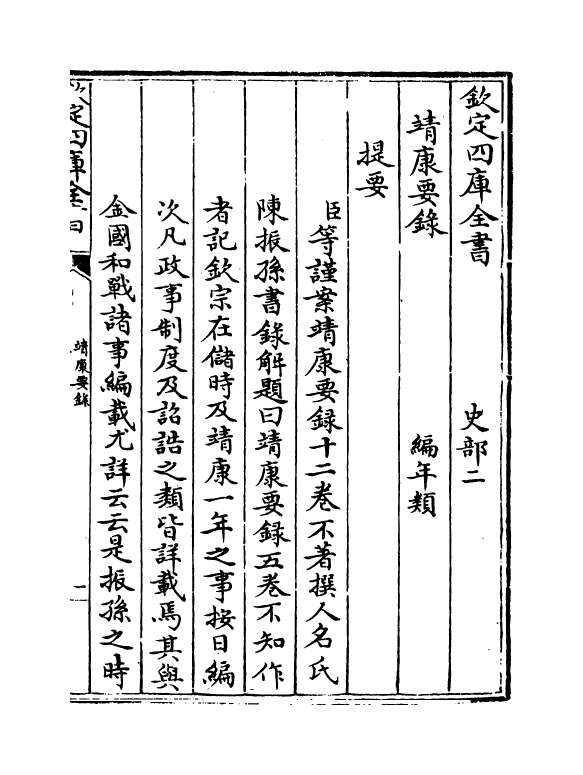 欽定四庫全書　　　史部二
靖康要錄　　　編年類
提要
臣等謹案靖康要録十二卷不著撰人名氏
陳振孫書録解題曰靖康要録五卷不知作
者記欽宗在儲時及靖康一年之事按日編
次凡政事制度及詔誥之類皆詳載焉其與
金國和戰諸事編載尤詳云云是振孫之時
欽定四庫全書
靖康要録
一